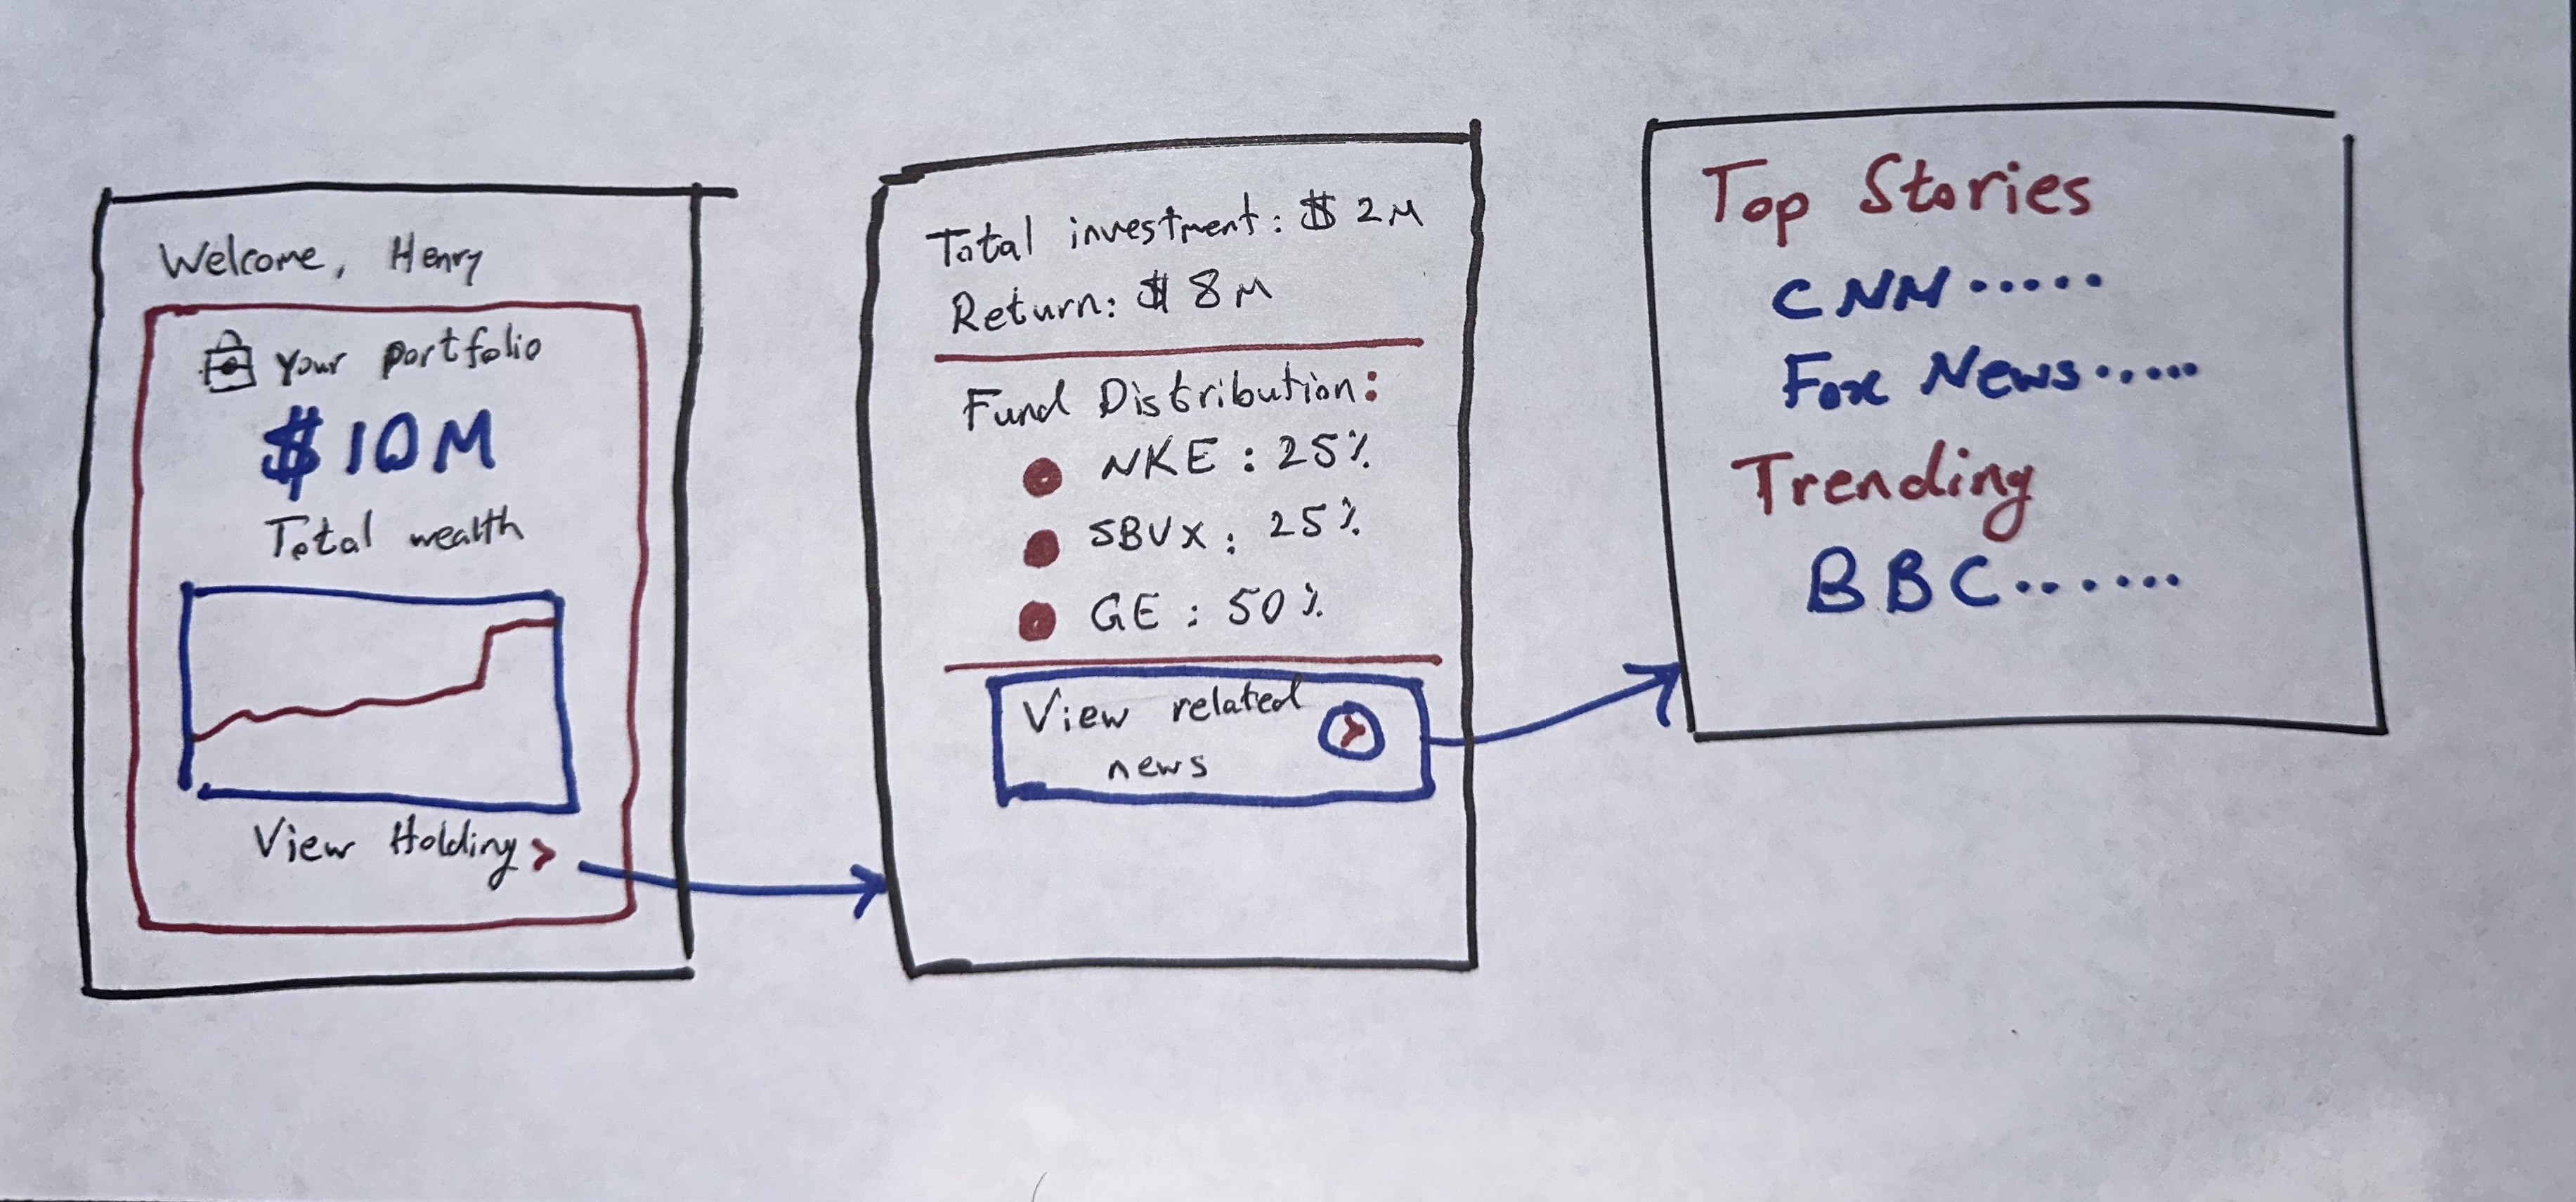 Welcome, Henry
Your portfolio
$10M
Total wealth
View Holding >
Total investment: $ 2M
Return: $ 8M
Fund Distribution:
NKE : 25%
SBVX : 25%
GE : 50%
View related
news >
Top Stories
CNN.....
Fox News.....
Trending
BBC......